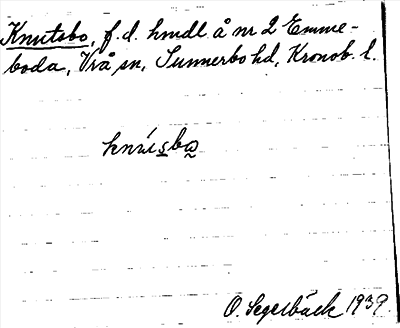 Knutsbo, f.d. hmdl å nr 2 Emme-
boda, Vrå sn, Sunnerbo hd, Kronob. l.
O. Segerbäck 1939.